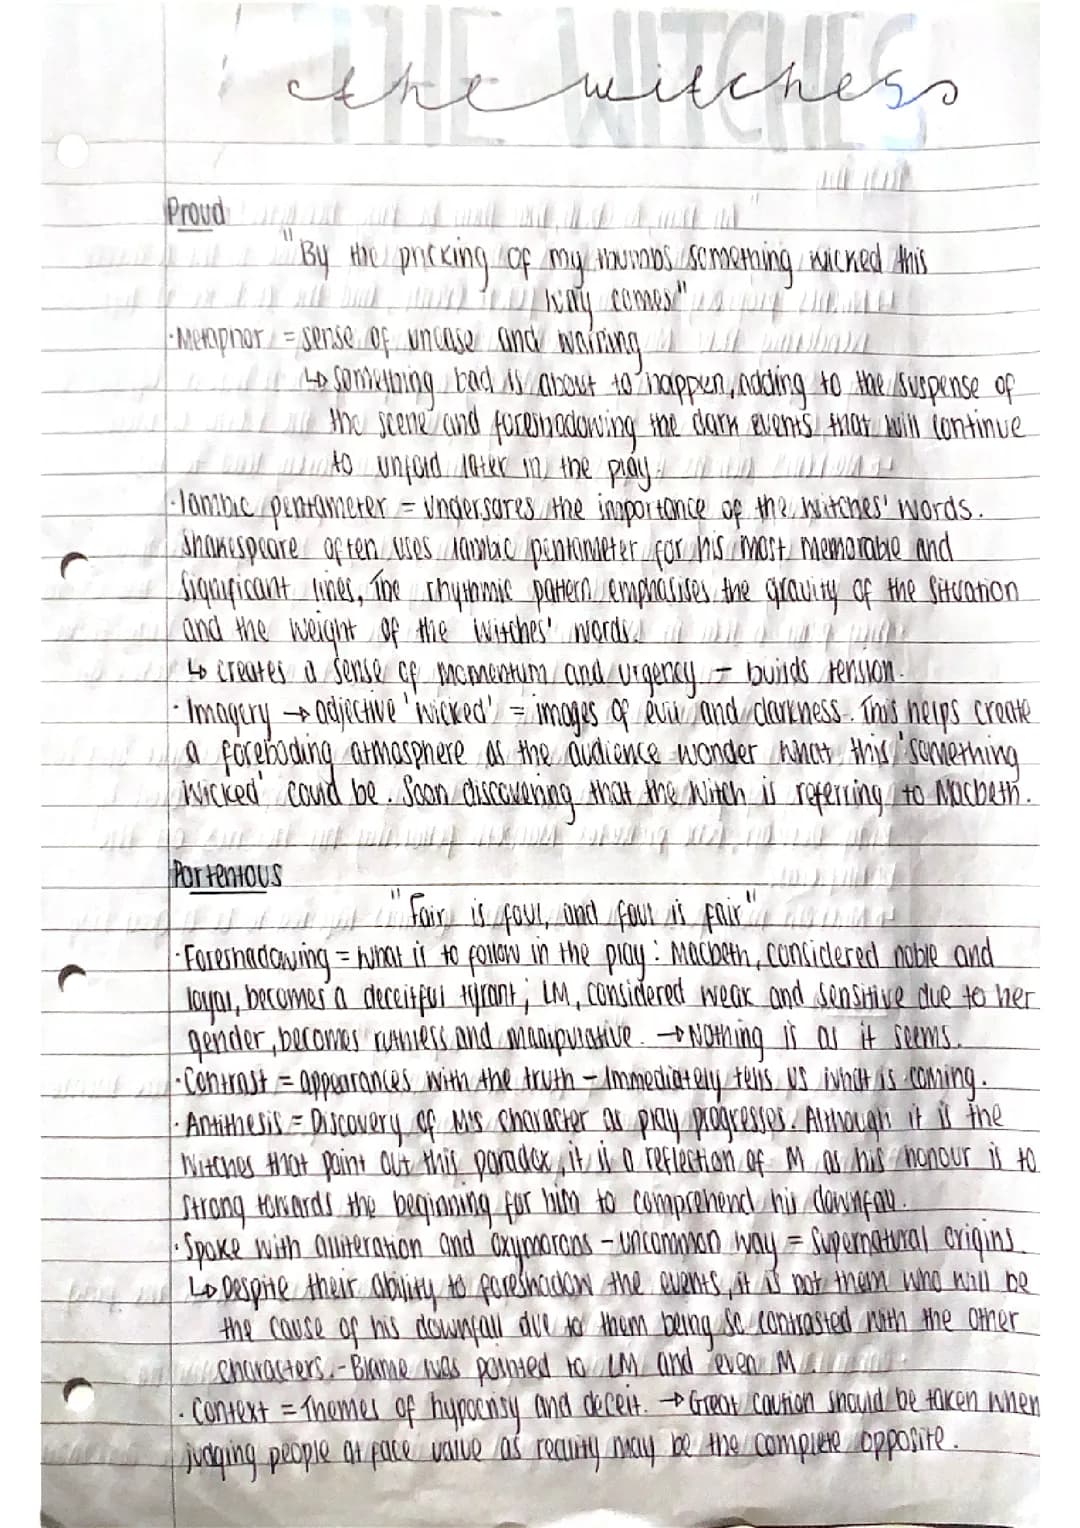 THE WITCHES
the witches
Proud
"By the pricking of my thumbs something wicked this
way comes"
·Metaphor = sense of unease and warning
↳ something bad is about to happen, adding to the suspense of
the scene and foreshadowing the dark events that will continue
to unfold later in the play.
·Iambic pentameter = undersares the importance of the witches' words.
Shakespeare often uses iambic pentameter for his most memorable and
significant lines, The rhythmic pattern emphasises the gravity of the situation
and the weight of the witches' words.
↳ creates a sense of momentum and urgency - builds tension.
·Imagery → adjective 'wicked' = images of evil and darkness. This helps create
a foreboding atmosphere as the audience wonder what this 'something
wicked' could be. Soon discovering that the witch is referring to Macbeth.
Portentous
"Fair is foul, and foul is fair"
·Foreshadowing = what is to follow in the play: Macbeth, considered noble and
loyal, becomes a deceitful tyrant; LM, considered weak and sensitive due to her
gender, becomes ruthless and manipulative. → Nothing is as it seems.
·Contrast = appearances with the truth - Immediately tells us what is coming.
·Antithesis = Discovery of M's character as play progresses. Although it is the
witches that point out this paradox, it is a reflection of M as his honour is to
strong towards the beginning for him to comprehend his downfall.
·Spoke with alliteration and oxymorons - uncommon way = supernatural origins
↳ Despite their ability to foreshadow the events, it is not them who will be
the cause of his downfall due to them being so contrasted with the other
characters. - Blame was pointed to LM and even M
·Context = Themes of hypocrisy and deceit. → Great caution should be taken when
judging people at face value as reality may be the complete opposite.